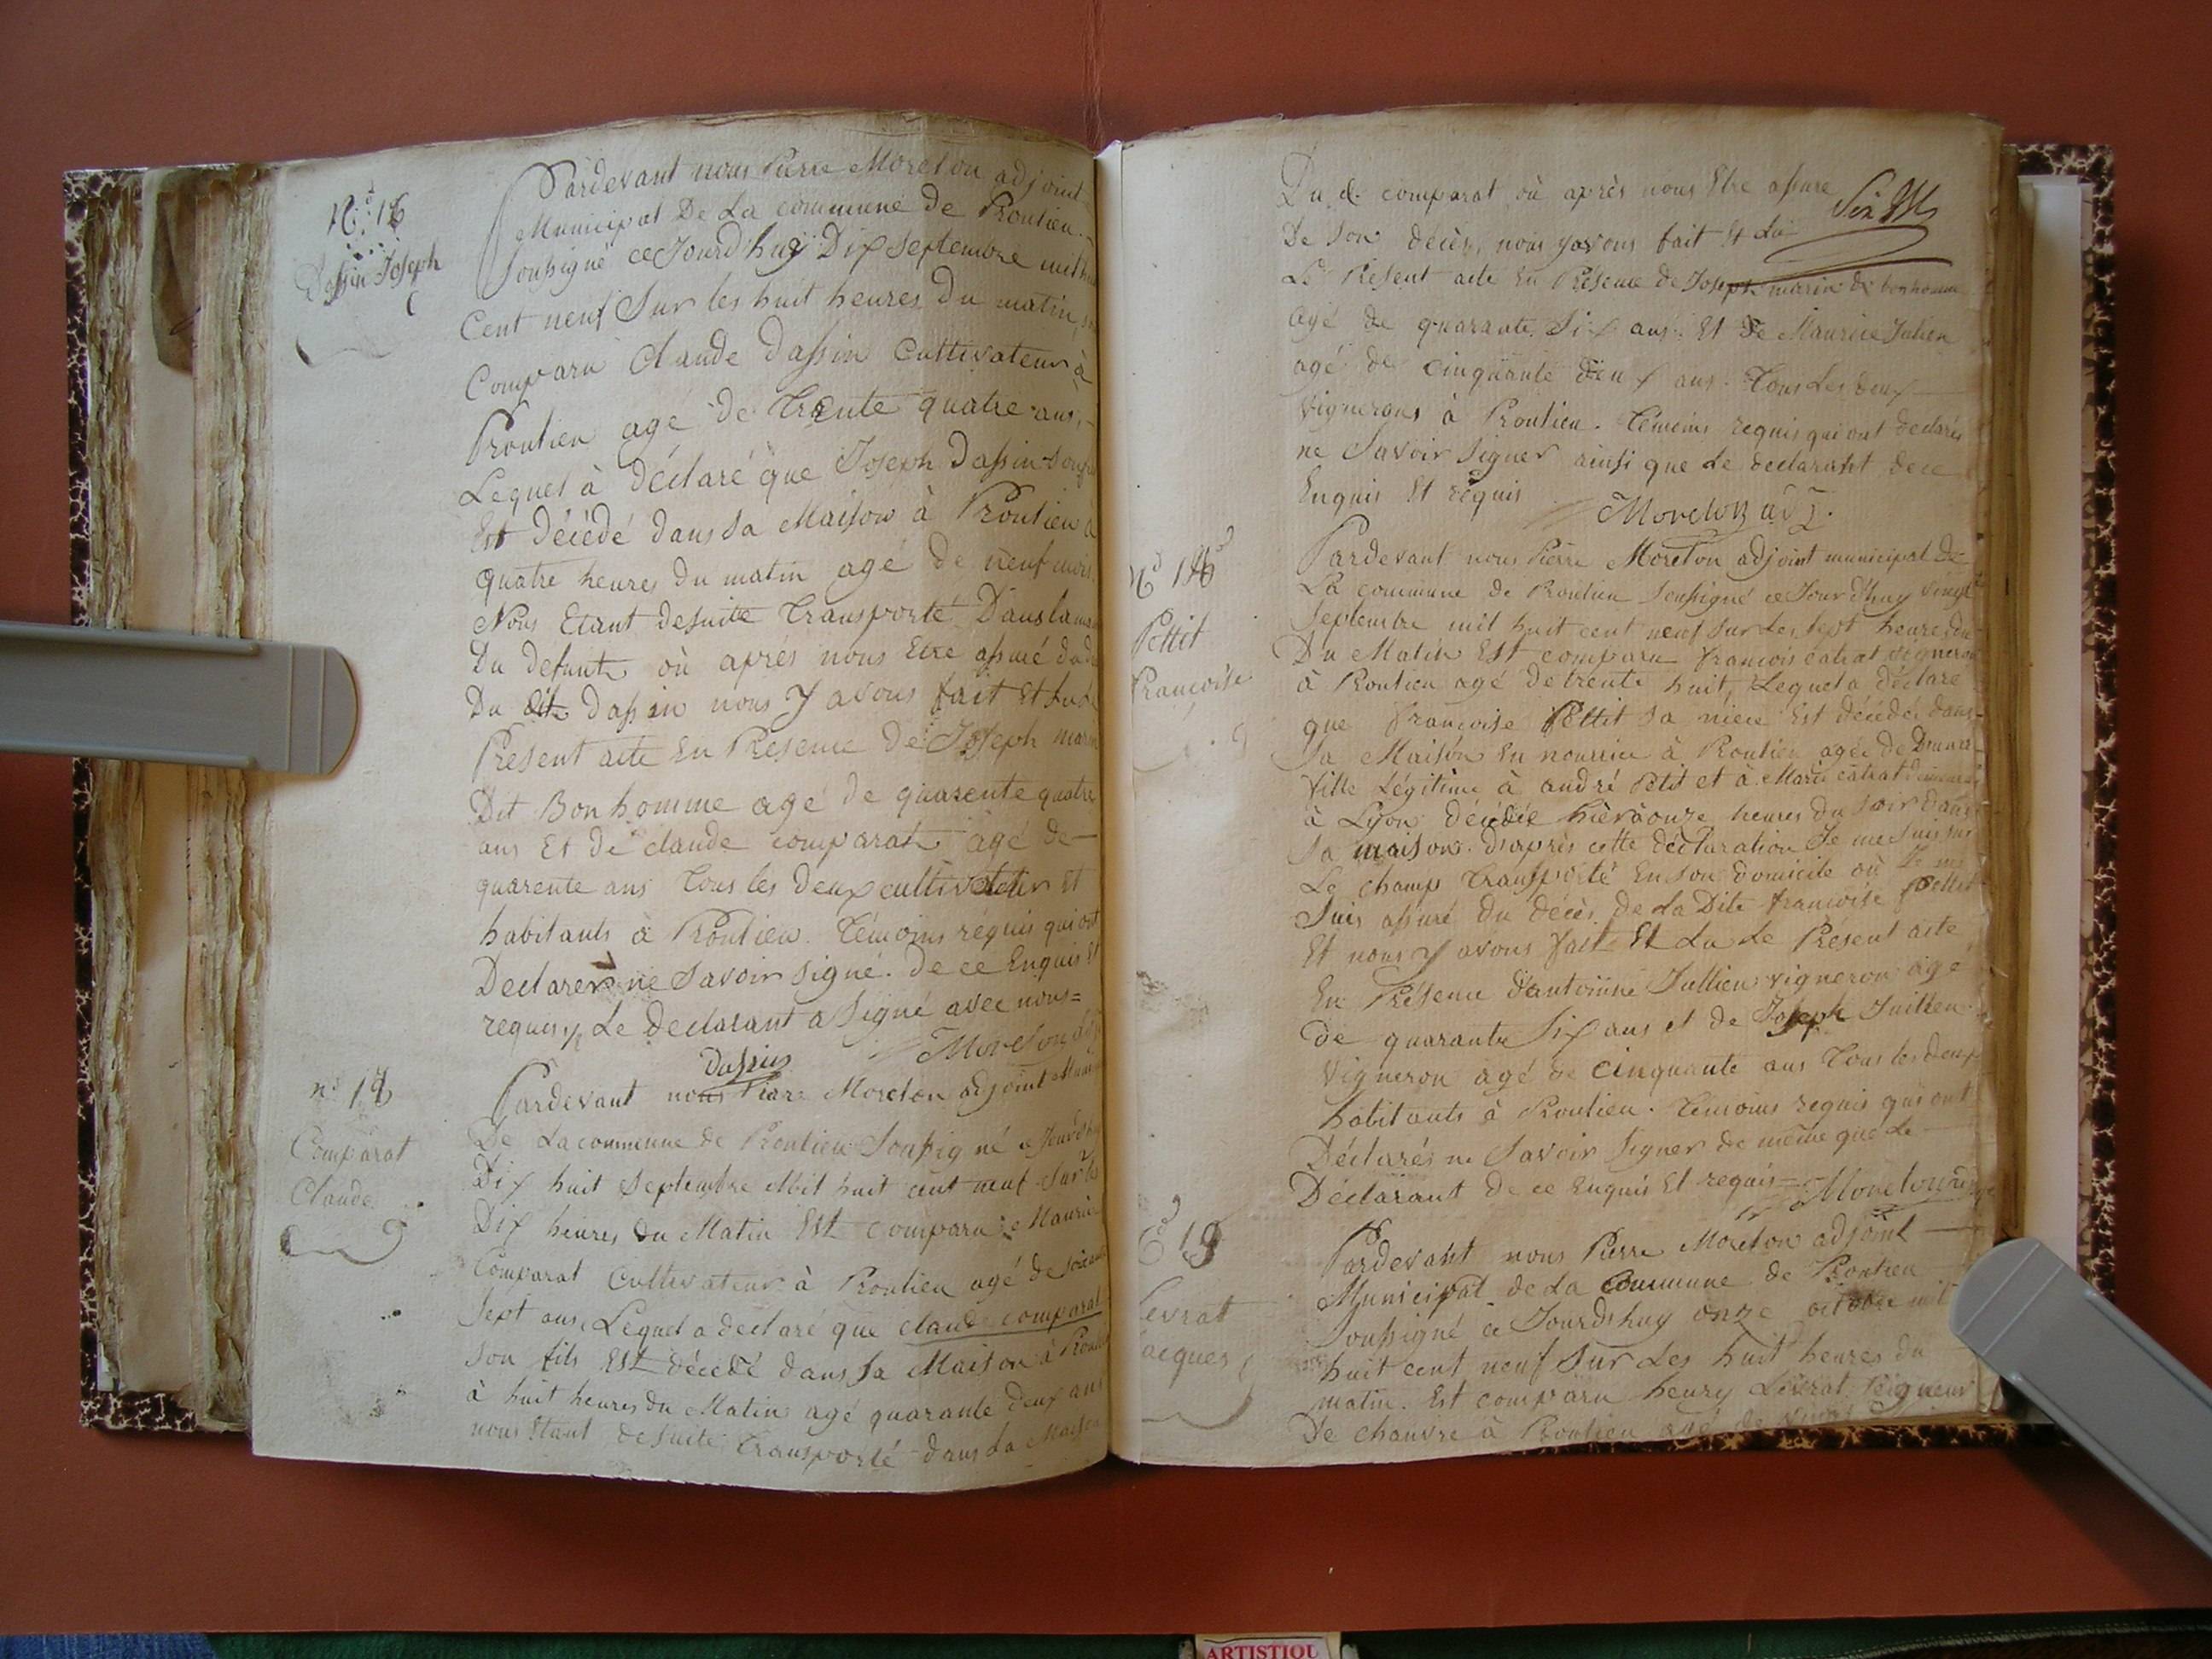 N.º 16
Dassin Joseph
Pardevant nous Pierre Moreton adjoint
Municipal De La commune de Pontien
Soussigné ce Jourd'huy Dix Septembre mil huit
Cent neuf Sur les huit heures Du matin,
Comparu Claude Dassin Cultivateur à
Pontien agé de Trente quatre ans,
Lequel à déclaré que Joseph Dassin son fils
Est Décédé dans sa Maison à Pontien à
quatre heures Du matin agé de neuf mois.
Nous Etant desuite Transporté Dans la
Du defunt où après nous Etre assuré
Du dit Dassin nous Y avons fait Et Lu
Présent acte En Présence De Joseph marin
Dit Bonhomme agé de quarente quatre
ans Et De claude comparat agé de
quarente ans Tous les Deux cultivateur Et
habitants à Pontien. Témoins réquis qui ont
Declarer ne Savoir Signé. De ce Enquis Et
requis, Le Declarant a Signé avec nous =
Dassin Moreton adj
n.º 17
Comparat
Claude
Pardevant nous Piere Moreton adjoint
De La commune de Pontien Soussigné ce Jourd'huy
Dix huit Septembre Mil huit cent neuf Sur les
Dix heures Du Matin Est comparu Maurice
Comparat Cultivateur à Pontien agé de
Sept ans, Lequel a declaré que claude comparat
Son fils Est décédé dans sa Maison à
à huit heures du Matin agé quarante deux ans
nous Etant desuite Transporté dans La Maison
Du d. comparat où après nous Etre assure
De son décès, nous y avons fait Et Lu
Le Présent acte En Présence de Joseph marin dt bonhomme
agé de quarante Six ans. Et De Maurice Julien
agé de cinquante deux ans. Tous Les deux
Vignerons à Pontien. Témoins requis qui ont declarés
ne Savoir Signer ainsi que Le declarant de ce
Enquis Et réquis
Moreton adj.
N.º 18
Pettit
Françoise
Pardevant nous Pierre Moreton adjoint municipal de
La commune de Pontien soussigné ce Jour d'huy vingt
Septembre mil huit cent neuf Sur Les sept heures du
Du Matin Est comparu françois catrat vigneron
à Pontien agé De trente huit, Lequel a déclaré
que françoise Pettit sa niece Est décédée dans
Sa Maison En nourrice à Pontien agée de
fille Légitime à andré Petit et à Marie catrat
à Lyon décédée hier à onze heures du Soir dans
Sa maison. D'après cette déclaration Je me Suis sur
Le champ transporté En son domicile où Je me
Suis assuré du décès de La Dite françoise Pettit
Et nous Y avons fait Et Lu Le Présent acte
En Présence d'antoinne Jullien vigneron agé
De quarante Six ans et de Joseph Juillen
Vigneron agé de Cinquante ans Tous les deux
habitants à Pontien. Témoins requis qui ont
Déclarés ne Savoir Signer de même que Le
Déclarant De ce Enquis Et requis = Moreton adj
19
Levrat
acques
Pardevant nous Pierre Moreton adjoint
Municipal de La Commune de Pontien
Soussigné ce Jourdshuy onze octobre mil
huit cent neuf Sur Les huit heures du
matin. Est comparu henry Levrat Peigneur
De chanvre à Pontien agé de
ARTISTIQU